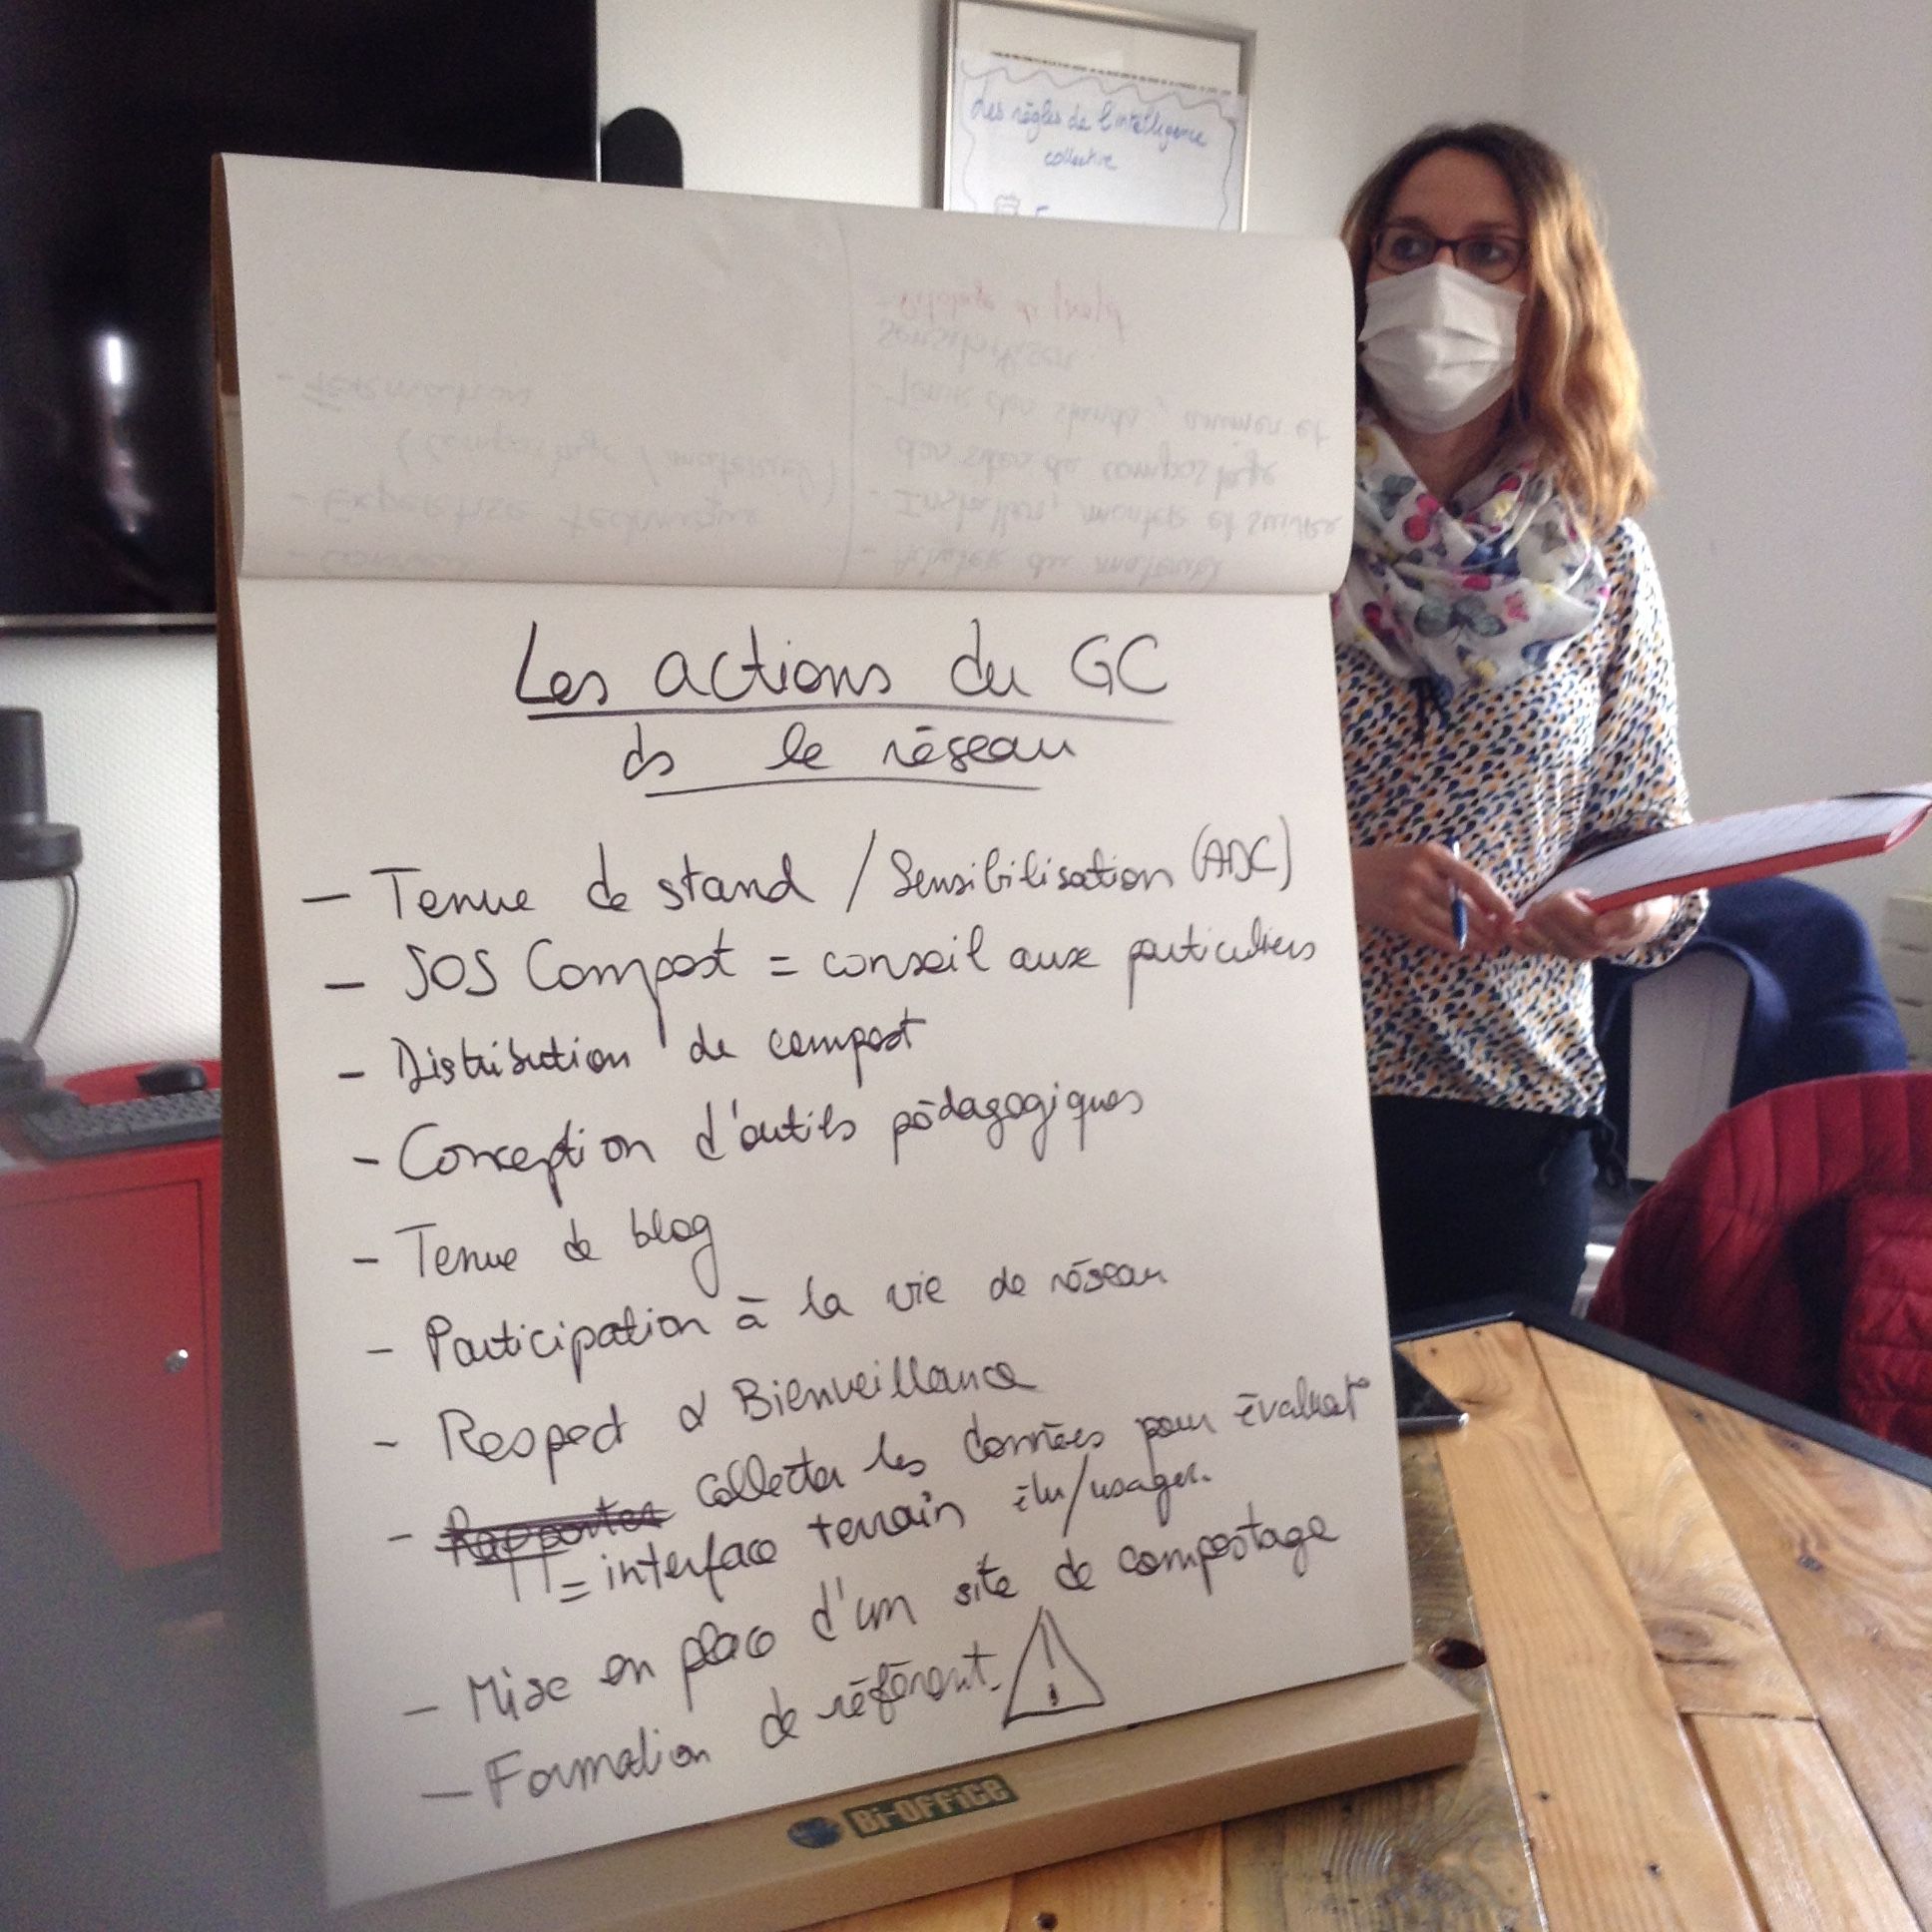 Les règles de l'intelligence
collective
Les actions du GC
ds le réseau
- Tenue de stand / Sensibilisation (ADC)
- SOS Compost = conseil aux particuliers
- Distribution de compost
- Conception d'outils pédagogiques
- Tenue de blog
- Participation à la vie de réseau
- Respect & Bienveillance
- Rapporter collecter les données pour évaluat°
= interface terrain élu/usager.
- Mise en place d'un site de compostage
- Formation de référent. !
Bi-OFFiCE